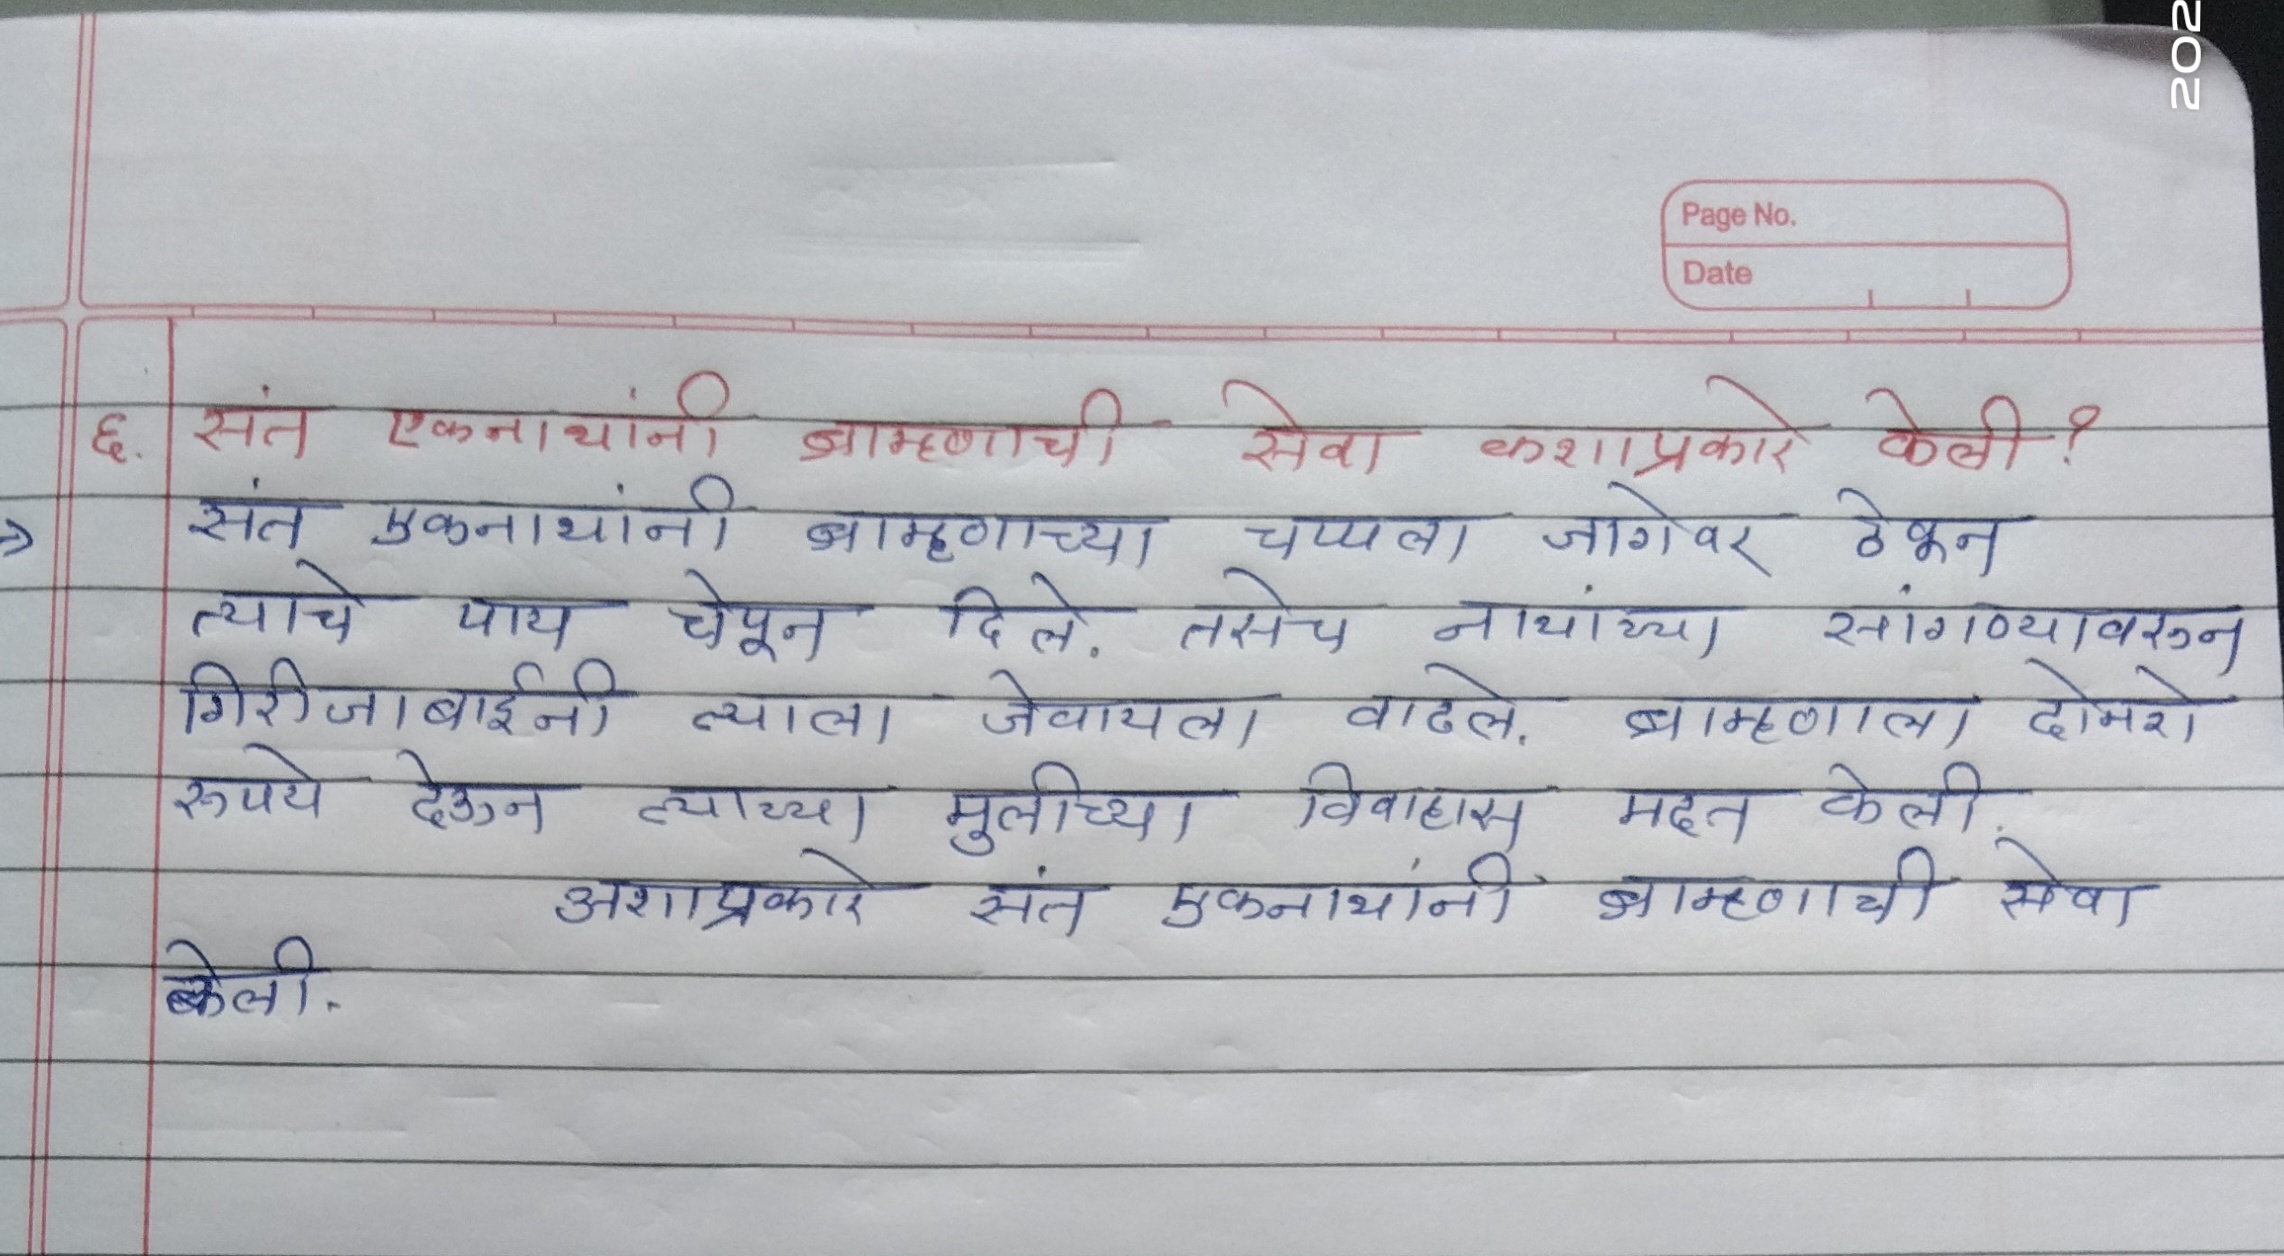 202
Page No.
Date
६. संत एकनाथांनी ब्राम्हणाची सेवा कशाप्रकारे केली?
⇒ संत एकनाथांनी ब्राम्हणाच्या चप्पला जागेवर ठेवून
त्याचे पाय चेपून दिले. तसेच नाथांच्या सांगण्यावरून
गिरीजाबाईनी त्याला जेवायला वाढले. ब्राम्हणाला दोनशे
रूपये देऊन त्याच्या मुलीच्या विवाहास मदत केली.
अशाप्रकारे संत एकनाथांनी ब्राम्हणाची सेवा
केली.